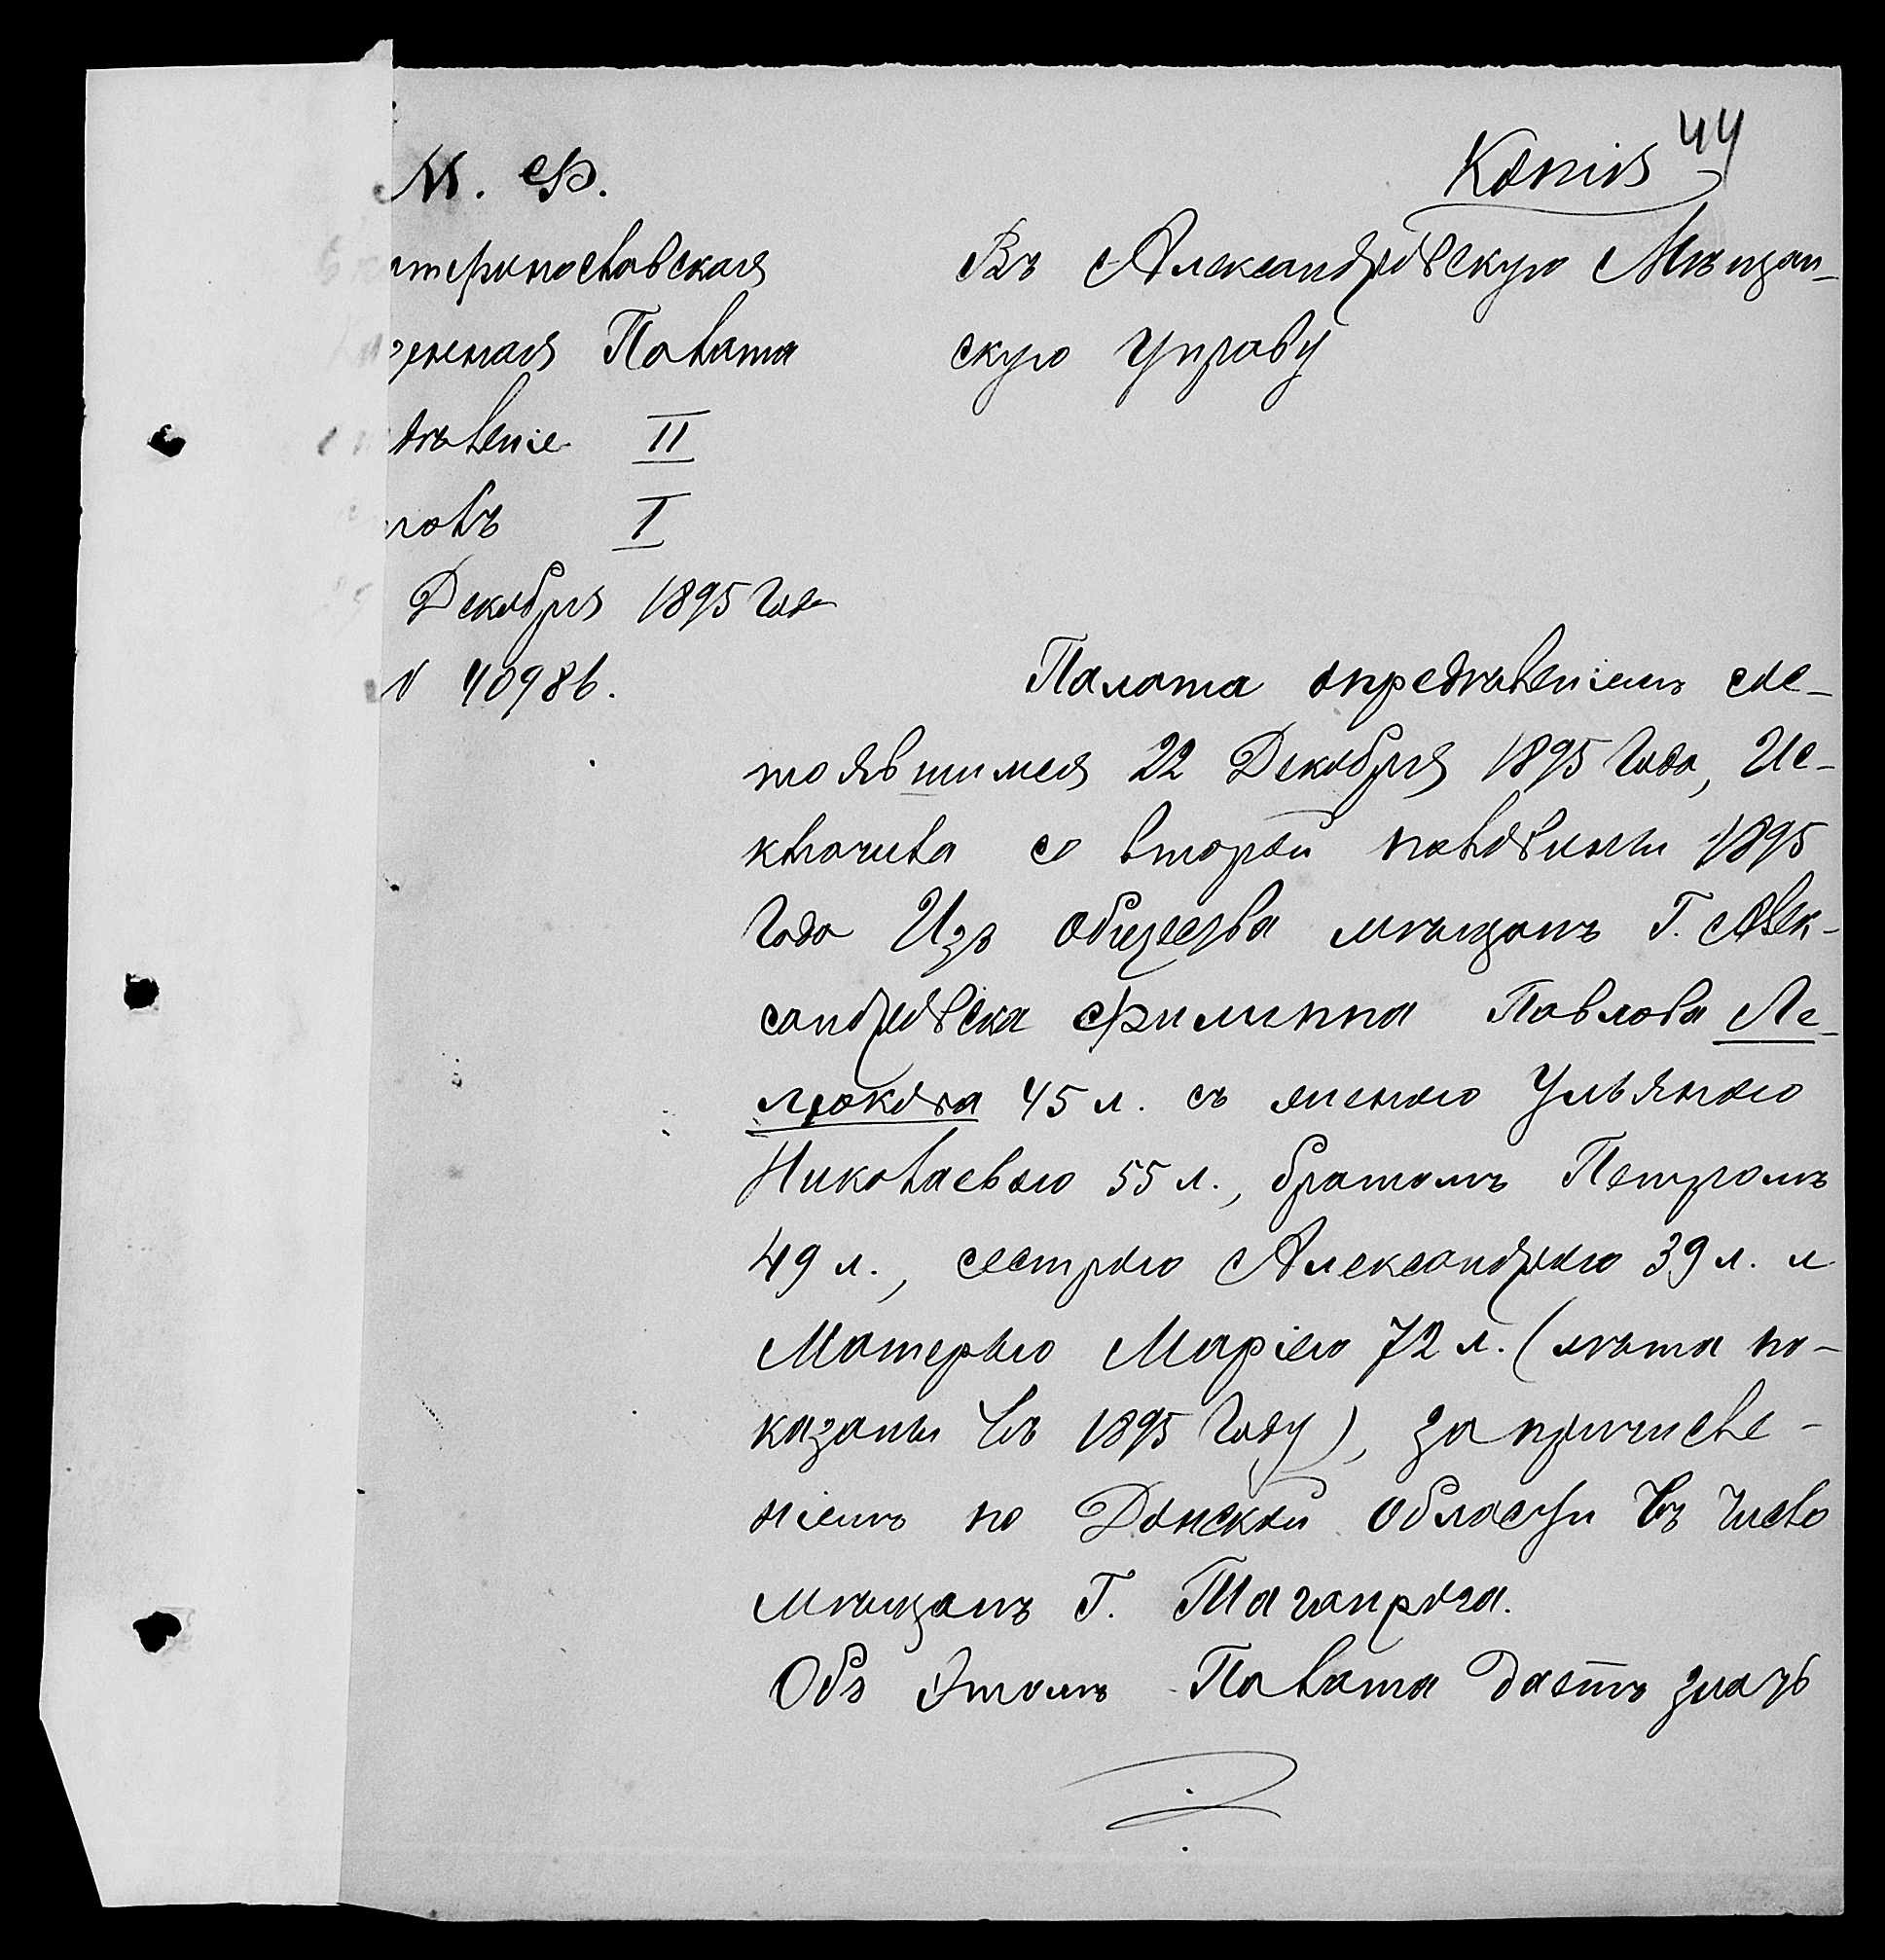 44
Копія
М. Ф.
терпнославская
енная Палата
дѣленіе II
толъ I
Декабря 1895 года
№ 40986.
Въ Александровскую Мѣщан-
скую Управу
Палата опредѣленіемъ сос-
тоявшимся 22 Декабря 1895 Года, Ис-
ключила со второй половины 1895
Года Изъ общества мѣщанъ Г. Алек-
сандровска Филиппа Павлова Ле-
люкова 45 л. съ женою Ульяною
Николаевою 55 л., братомъ Петромъ
49 л., сестрою Александрою 39 л. и
Матерью Маріею 72 л. (лѣта по-
казаны въ 1895 Году), за причисле-
ніемъ по Донской Области въ число
мѣщанъ Г. Таганрога.
Объ этомъ Палата даетъ знать